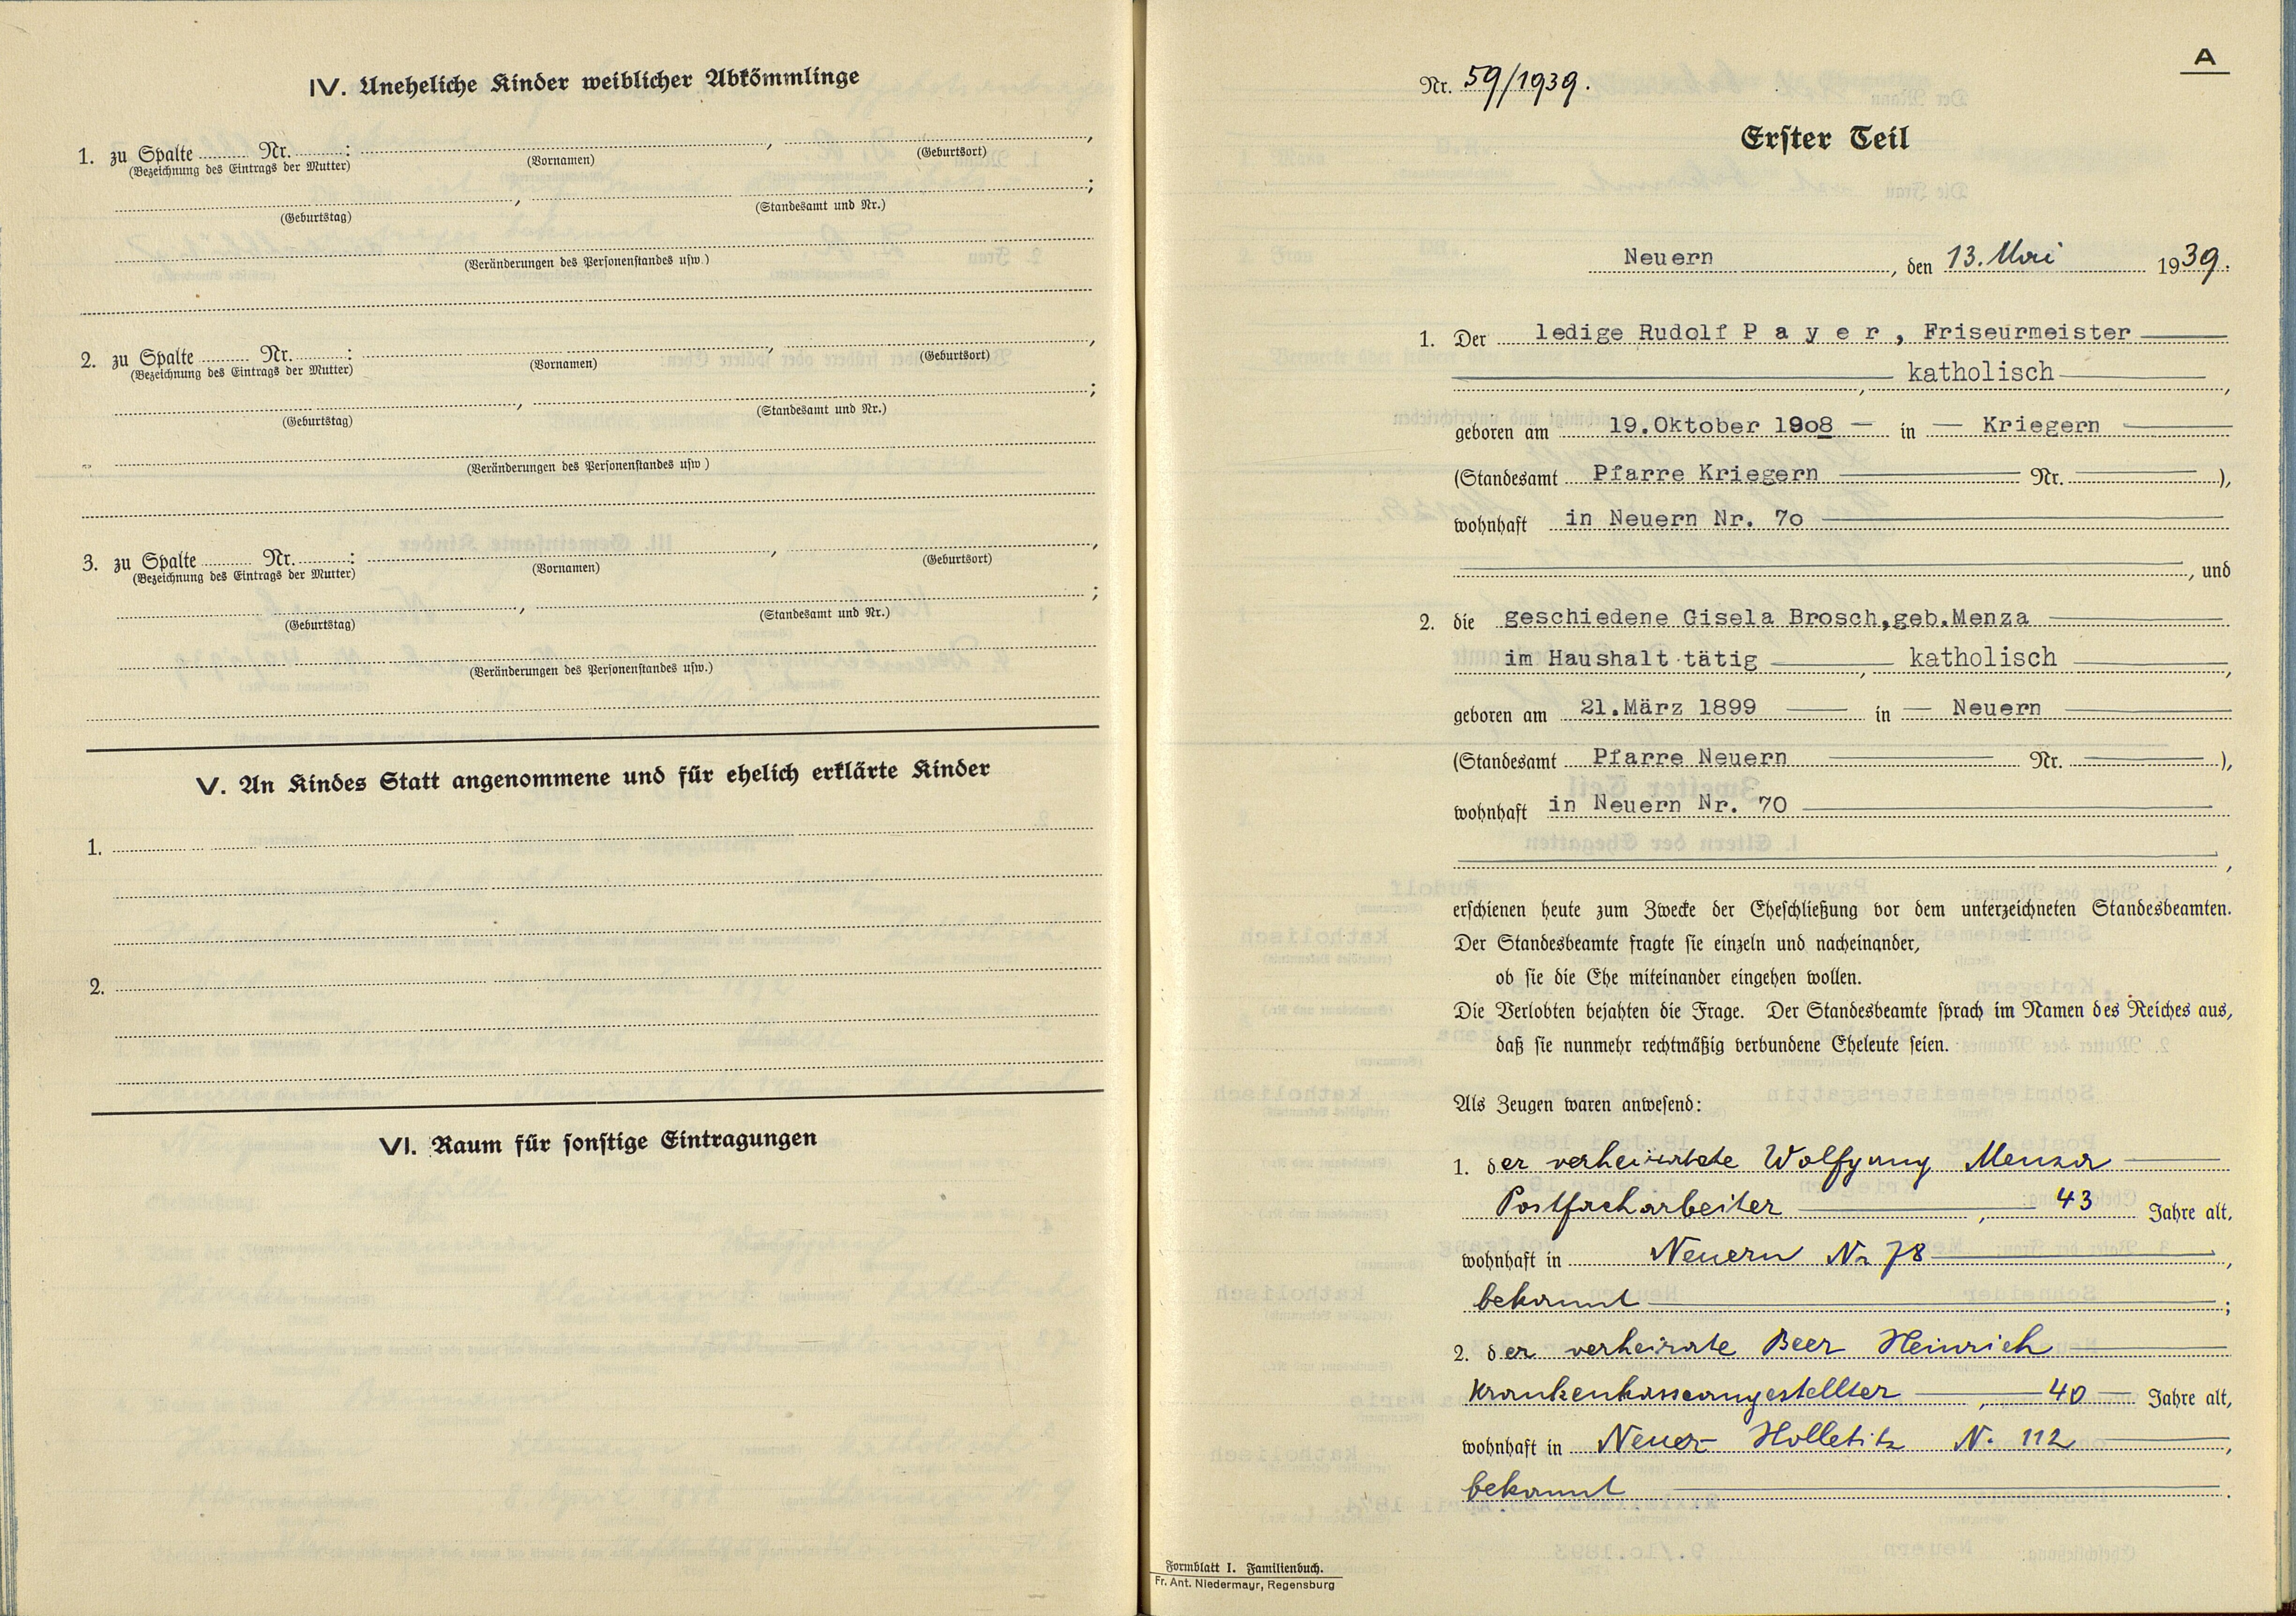 IV. Uneheliche Kinder weiblicher Abkömmlinge
1. zu Spalte ........ Nr. ........: ........, ........,
(Bezeichnung des Eintrags der Mutter) (Vornamen) (Geburtsort)
........, ........;
(Geburtstag) (Standesamt und Nr.)
(Veränderungen des Personenstandes usw.)
2. zu Spalte ........ Nr. ........: ........, ........,
(Bezeichnung des Eintrags der Mutter) (Vornamen) (Geburtsort)
........, ........;
(Geburtstag) (Standesamt und Nr.)
(Veränderungen des Personenstandes usw)
3. zu Spalte ........ Nr. ........: ........, ........,
(Bezeichnung des Eintrags der Mutter) (Vornamen) (Geburtsort)
........, ........;
(Geburtstag) (Standesamt und Nr.)
(Veränderungen des Personenstandes usw.)
V. An Kindes Statt angenommene und für ehelich erklärte Kinder
1.
2.
VI. Raum für sonstige Eintragungen
A
Nr. 59/1939.
Erster Teil
Neuern, den 13. Mai 1939.
1. Der ledige Rudolf P a y e r , Friseurmeister
, katholisch,
geboren am 19.Oktober 1908 — in — Kriegern
(Standesamt Pfarre Kriegern Nr. ),
wohnhaft in Neuern Nr. 7o
, und
2. die geschiedene Gisela Brosch,geb.Menza
im Haushalt tätig, katholisch,
geboren am 21.März 1899 — in — Neuern
(Standesamt Pfarre Neuern Nr. ),
wohnhaft in Neuern Nr. 70
,
erschienen heute zum Zwecke der Eheschließung vor dem unterzeichneten Standesbeamten.
Der Standesbeamte fragte sie einzeln und nacheinander,
ob sie die Ehe miteinander eingehen wollen.
Die Verlobten bejahten die Frage. Der Standesbeamte sprach im Namen des Reiches aus,
daß sie nunmehr rechtmäßig verbundene Eheleute seien.
Als Zeugen waren anwesend:
1. der verheiratete Wolfgang Menza
Postfacharbeiter, 43 Jahre alt,
wohnhaft in Neuern Nr 78,
bekannt;
2. der verheirate Beer Heinrich
Krankenkasseangestellter, 40 Jahre alt,
wohnhaft in Neuer- Holletitz N. 112,
bekannt.
Formblatt I. Familienbuch.
Fr. Ant. Niedermayr, Regensburg